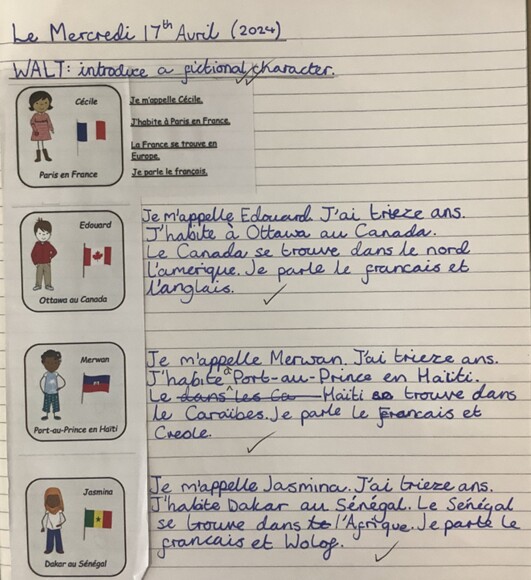 Le Mercredi 17th Avril (2024)
WALT: introduce a fictional character.
Cécile
Paris en France
Je m'appelle Cécile.
J'habite à Paris en France.
La France se trouve en
Europe.
Je parle le français.
Edouard
Ottawa au Canada
Je m'appelle Edouard J'ai trieze ans.
J'habite à Ottawa au Canada.
Le Canada se trouve dans le nord
l'amerique. Je parle le francais et
l'anglais.
Merwan
Port-au-Prince en Haïti
Je m'appelle Merwan. J'ai trieze ans.
J'habite à Port-au-Prince en Haïti.
Le dans les Ca Haïti se trouve dans
le Caraïbes. Je parle le Francais et
Creole.
Jasmina
Dakar au Sénégal
Je m'appelle Jasmina. J'ai trieze ans.
J'habite Dakar au Sénégal. Le Sénégal
se trouve dans l'Afrique. Je parle le
francais et Wolof.